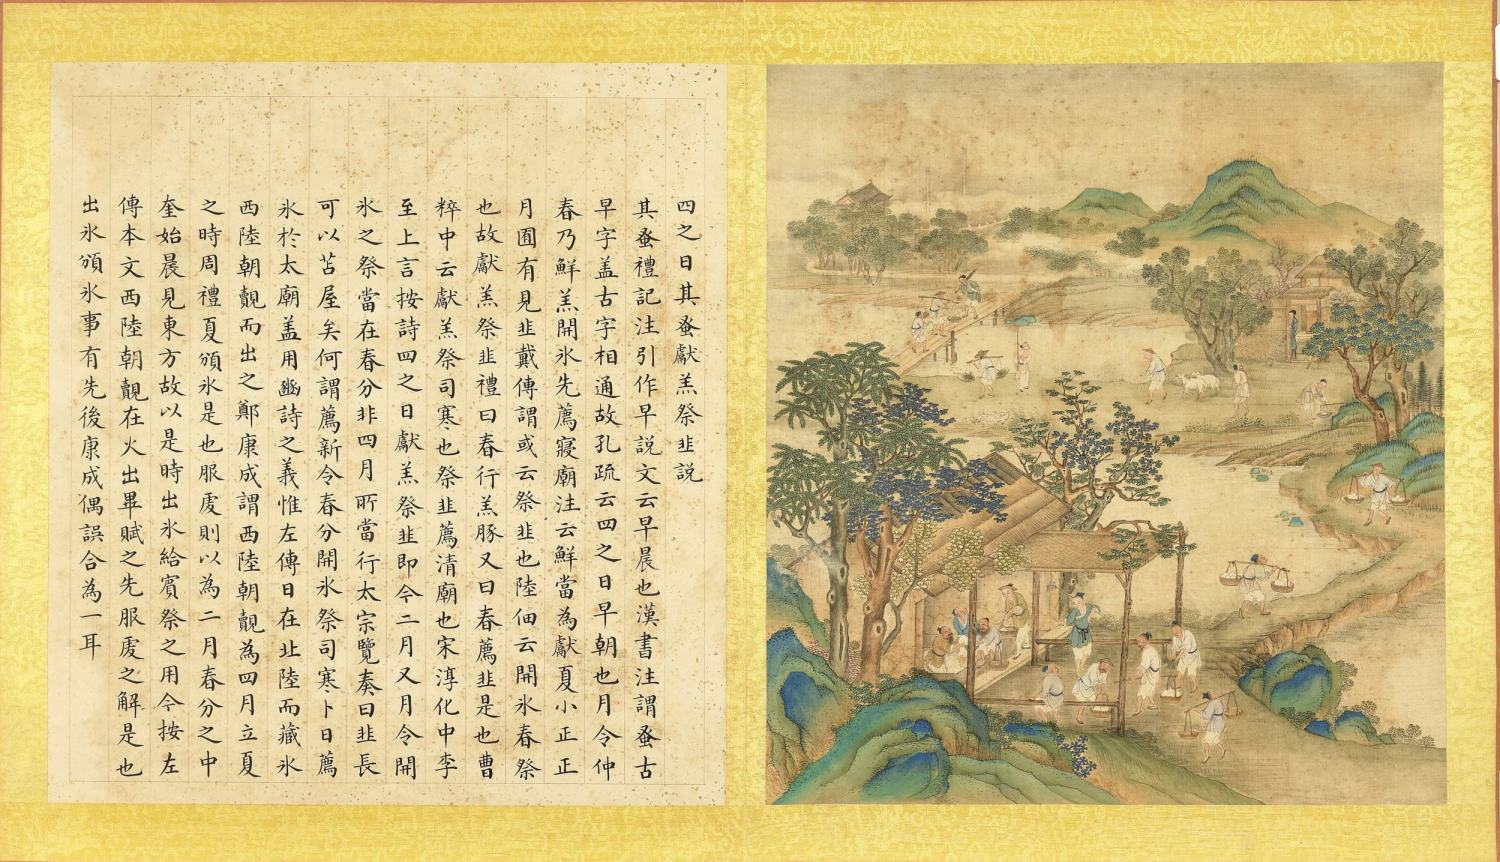 四之日其蚤獻羔祭韭說
其蚤禮記注引作早說文云早晨也漢書注謂蚤古
早字盖古字相通故孔疏云四之日早朝也月令仲
春乃鮮羔開氷先薦寢廟注云鮮當為獻夏小正正
月囿有見韭戴傳謂或云祭韭也陸佃云開氷春祭
也故獻羔祭韭禮曰春行羔豚又曰春薦韭是也曹
粹中云獻羔祭司寒也祭韭薦清廟也宋淳化中李
至上言按詩四之日獻羔祭韭即今二月又月令開
氷之祭當在春分非四月所當行太宗覽奏曰韭長
可以苫屋矣何謂薦新令春分開氷祭司寒卜日薦
氷於太廟盖用豳詩之義惟左傳日在北陸而藏氷
西陸朝覿而出之鄭康成謂西陸朝覿為四月立夏
之時周禮夏頒氷是也服虔則以為二月春分之中
奎始晨見東方故以是時出氷給賓祭之用今按左
傳本文西陸朝覿在火出畢賦之先服虔之解是也
出氷頒氷事有先後康成偶誤合為一耳